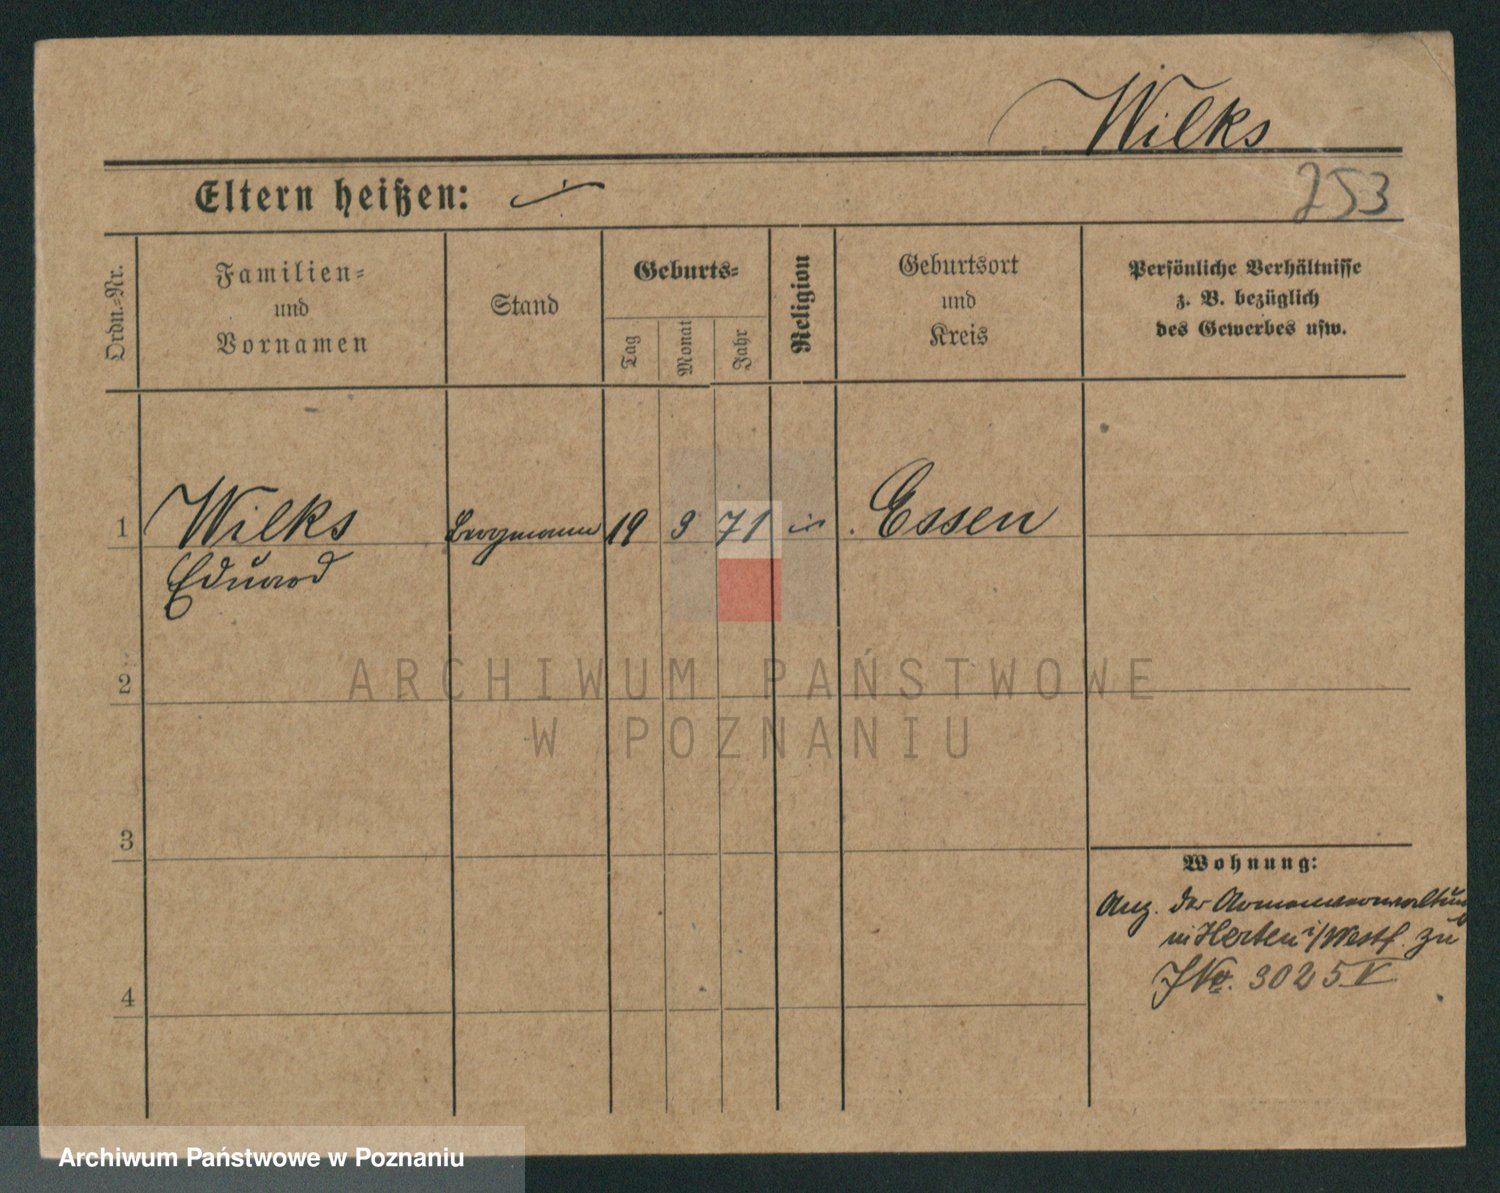 Wilks
Eltern heißen:
253
Ordn.-Nr.
Familien-
und
Vornamen
Stand
Geburts-
Tag
Monat
Jahr
Religion
Geburtsort
und
Kreis
Persönliche Verhältnisse
z. B. bezüglich
des Gewerbes usw.
1
Wilks
Eduard
Bergmann
19
9
71
Essen
2
ARCHIWUM PAŃSTWOWE
W POZNANIU
3
4
Wohnung:
Ang. der Armenverwaltung
in Herten i/Westf. zu
JNo. 3025 V
Archiwum Państwowe w Poznaniu